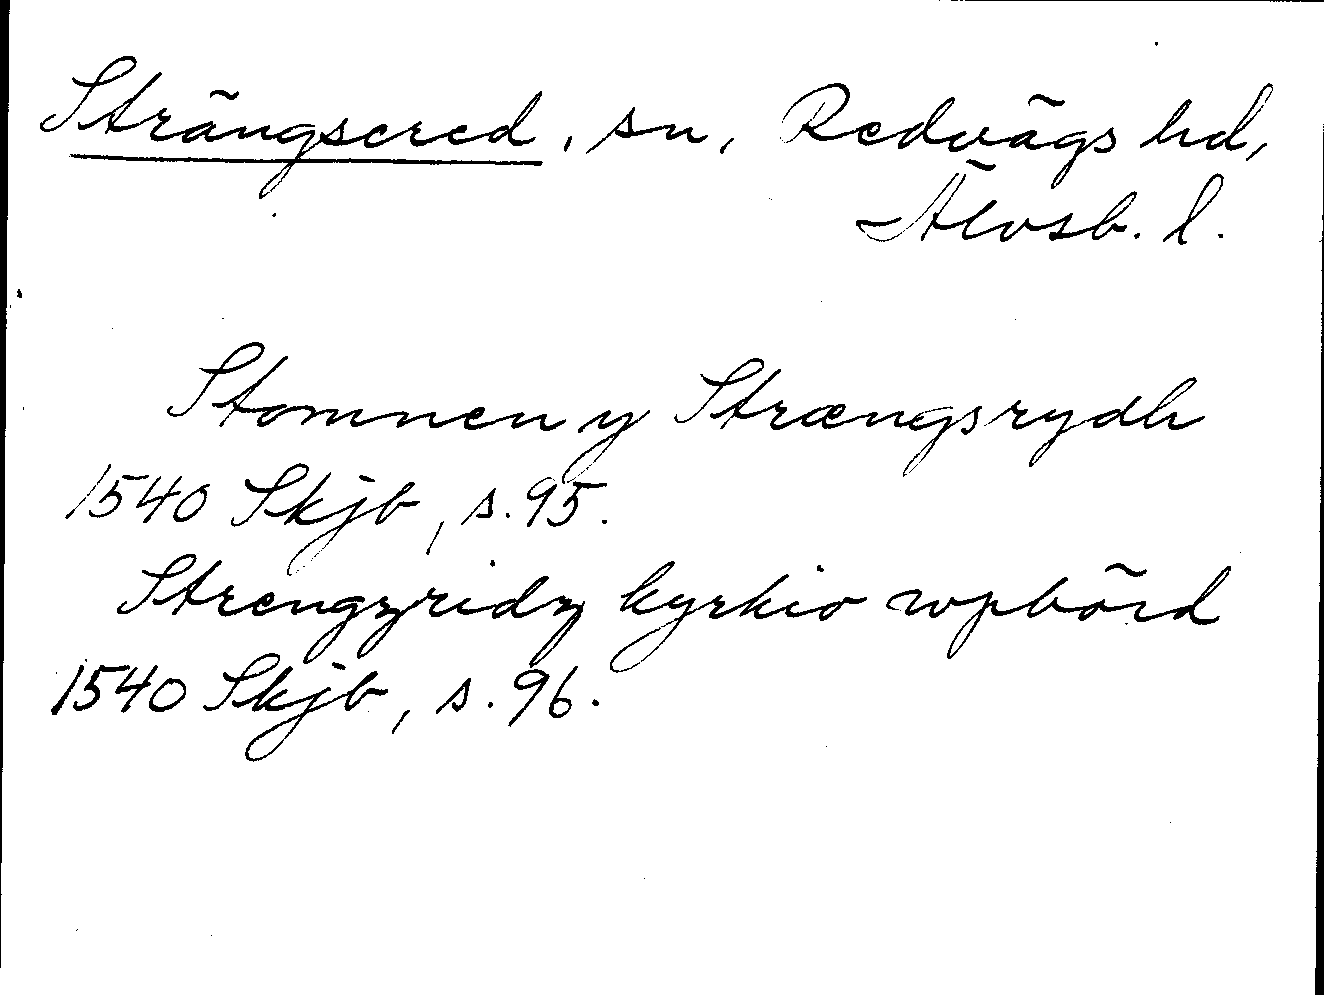 Strängsered, sn, Redvägs hd,
Älvsb. l.
Stomnen y Strængsrydh
1540 Skjb, s. 95.
Strengzridz kyrkio wpbörd
1540 Skjb, s. 96.